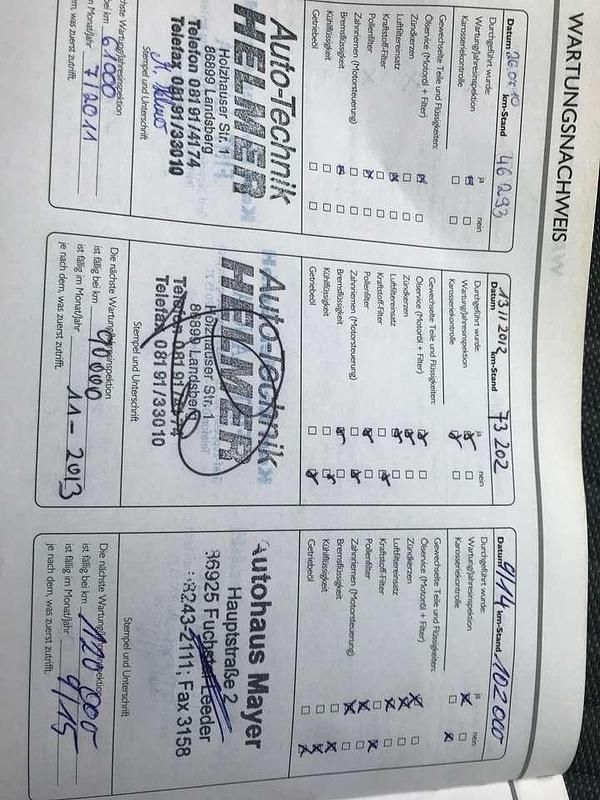 WARTUNGSNACHWEIS
Datum 26.04.10 km-Stand 46 293
Durchgeführt wurde: ja nein
Wartung/Jahresinspektion
Karosseriekontrolle
Gewechselte Teile und Flüssigkeiten:
Ölservice (Motoröl + Filter)
Zündkerzen
Luftfiltereinsatz
Kraftstoff-Filter
Pollenfilter
Zahnriemen (Motorsteuerung)
Bremsflüssigkeit
Kühlflüssigkeit
Getriebeöl
Auto-Technik
HELMER
Holzhauser Str. 1
86899 Landsberg
Telefon 08191/4174
Telefax 08191/33010
Stempel und Unterschrift
chste Wartung/Jahresinspektion
bei km 61000
im Monat/Jahr 7/2011
m, was zuerst zutrifft.
Datum 13.11.2012 km-Stand 73 202
Durchgeführt wurde: ja nein
Wartung/Jahresinspektion
Karosseriekontrolle
Gewechselte Teile und Flüssigkeiten:
Ölservice (Motoröl + Filter)
Zündkerzen
Luftfiltereinsatz
Kraftstoff-Filter
Pollenfilter
Zahnriemen (Motorsteuerung)
Bremsflüssigkeit
Kühlflüssigkeit
Getriebeöl
Auto-Technik
HELMER
Holzhauser Str. 1
86899 Landsberg
Telefon 08191/4174
Telefax 08191/33010
Stempel und Unterschrift
Die nächste Wartung/Jahresinspektion
ist fällig bei km 90000
ist fällig im Monat/Jahr 11-2013
je nach dem, was zuerst zutrifft.
Datum 9/14 km-Stand 102000
Durchgeführt wurde: ja nein
Wartung/Jahresinspektion
Karosseriekontrolle
Gewechselte Teile und Flüssigkeiten:
Ölservice (Motoröl + Filter)
Zündkerzen
Luftfiltereinsatz
Kraftstoff-Filter
Pollenfilter
Zahnriemen (Motorsteuerung)
Bremsflüssigkeit
Kühlflüssigkeit
Getriebeöl
Autohaus Mayer
Hauptstraße 2
86925 Fuchstal-Leeder
8243-2111; Fax 3158
Stempel und Unterschrift
Die nächste Wartung/Jahresinspektion
ist fällig bei km 120 000
ist fällig im Monat/Jahr 9/15
je nach dem, was zuerst zutrifft.